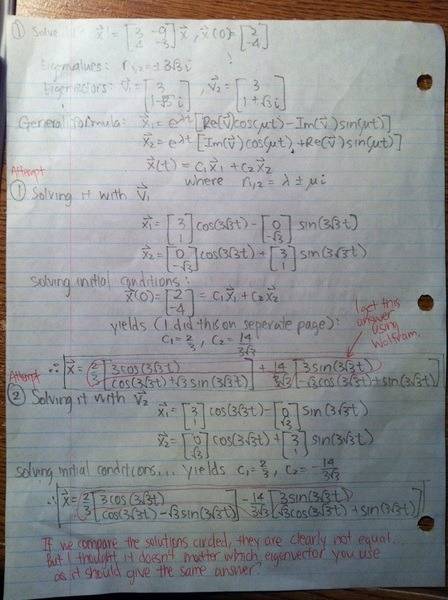 ① Solve x⃗' = [3 -9; 4 -3] x⃗, x⃗(0) = [2; -4]
Eigenvalues: r₁,₂ = ±3√3 i
Eigenvectors: v⃗₁ = [3; 1-√3 i], v⃗₂ = [3; 1+√3 i]
General formula: x⃗₁ = e^λt [Re(v⃗)cos(μt) - Im(v⃗)sin(μt)]
x⃗₂ = e^λt [Im(v⃗)cos(μt) + Re(v⃗)sin(μt)]
x⃗(t) = c₁x⃗₁ + c₂x⃗₂
where r₁,₂ = λ ± μi
Attempt
① Solving it with v⃗₁
x⃗₁ = [3; 1] cos(3√3t) - [0; -√3] sin(3√3t)
x⃗₂ = [0; -√3] cos(3√3t) + [3; 1] sin(3√3t)
solving initial conditions:
x⃗(0) = [2; -4] = c₁x⃗₁ + c₂x⃗₂
yields (I did this on seperate page):
c₁ = 2/3, c₂ = 14/3√3
I get this
answer
using
Wolfram.
∴ x⃗ = 2/3 [3cos(3√3t); cos(3√3t) + √3 sin(3√3t)] + 14/3√3 [3sin(3√3t); -√3 cos(3√3t) + sin(3√3t)]
Attempt
② Solving it with v⃗₂
x⃗₁ = [3; 1] cos(3√3t) - [0; √3] sin(3√3t)
x⃗₂ = [0; √3] cos(3√3t) + [3; 1] sin(3√3t)
solving initial conditions... yields c₁ = 2/3, c₂ = -14/3√3
∴ x⃗ = 2/3 [3cos(3√3t); cos(3√3t) - √3 sin(3√3t)] - 14/3√3 [3sin(3√3t); √3 cos(3√3t) + sin(3√3t)]
If we compare the solutions circled, they are clearly not equal...
But I thought it doesn't matter which eigenvector you use
as it should give the same answer?